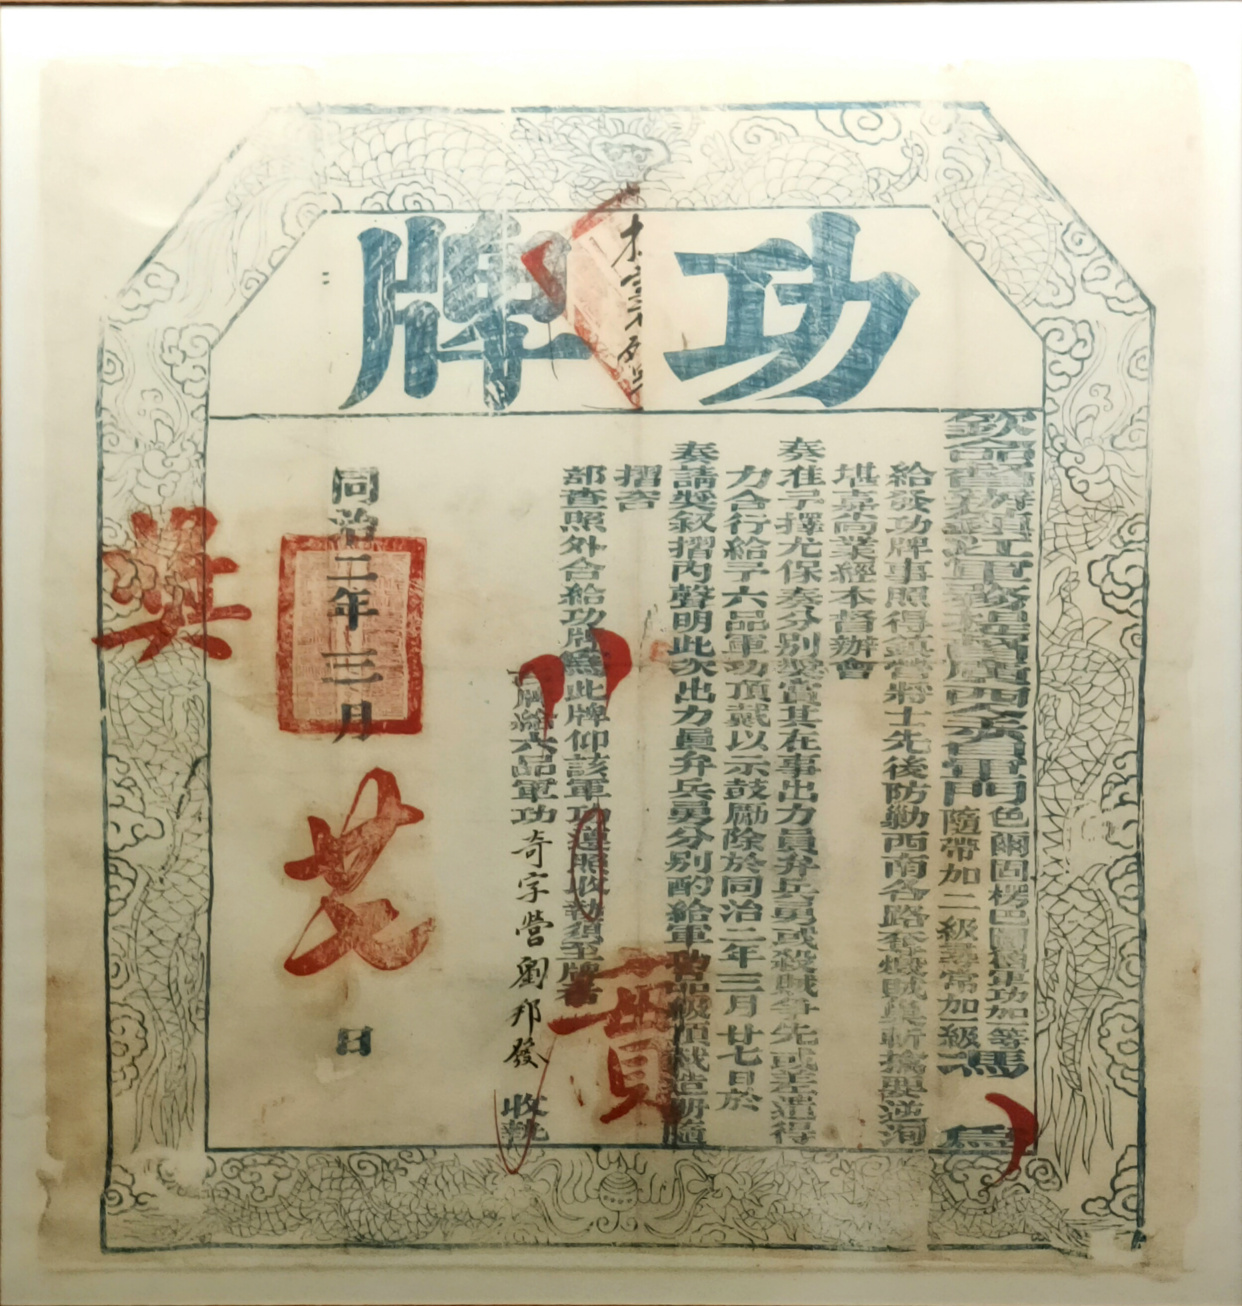 功牌
欽命督辦鎮江軍務提督廣西全省軍門色爾固楞巴圖魯軍功加一等隨帶加二級尋常加一級馮 爲
給發功牌事照得鎮營將士先後防勦西南各路焚燬賊巢斬擒要逆洵
堪嘉尚業經本督辦會
奏准予擇尤保奏分別奬賞其在事出力員弁兵勇或殺賊爭先或差遣得
力合行給予六品軍功頂戴以示鼓勵除於同治二年三月廿七日於
奏請奬敘摺內聲明此次出力員弁兵勇分別酌給軍功品級頂戴造册隨
摺咨
部查照外合給功牌爲此牌仰該軍功遵照收執須至牌者
牌給六品軍功奇字營劉邦發 收執
賞
同治二年三月 日